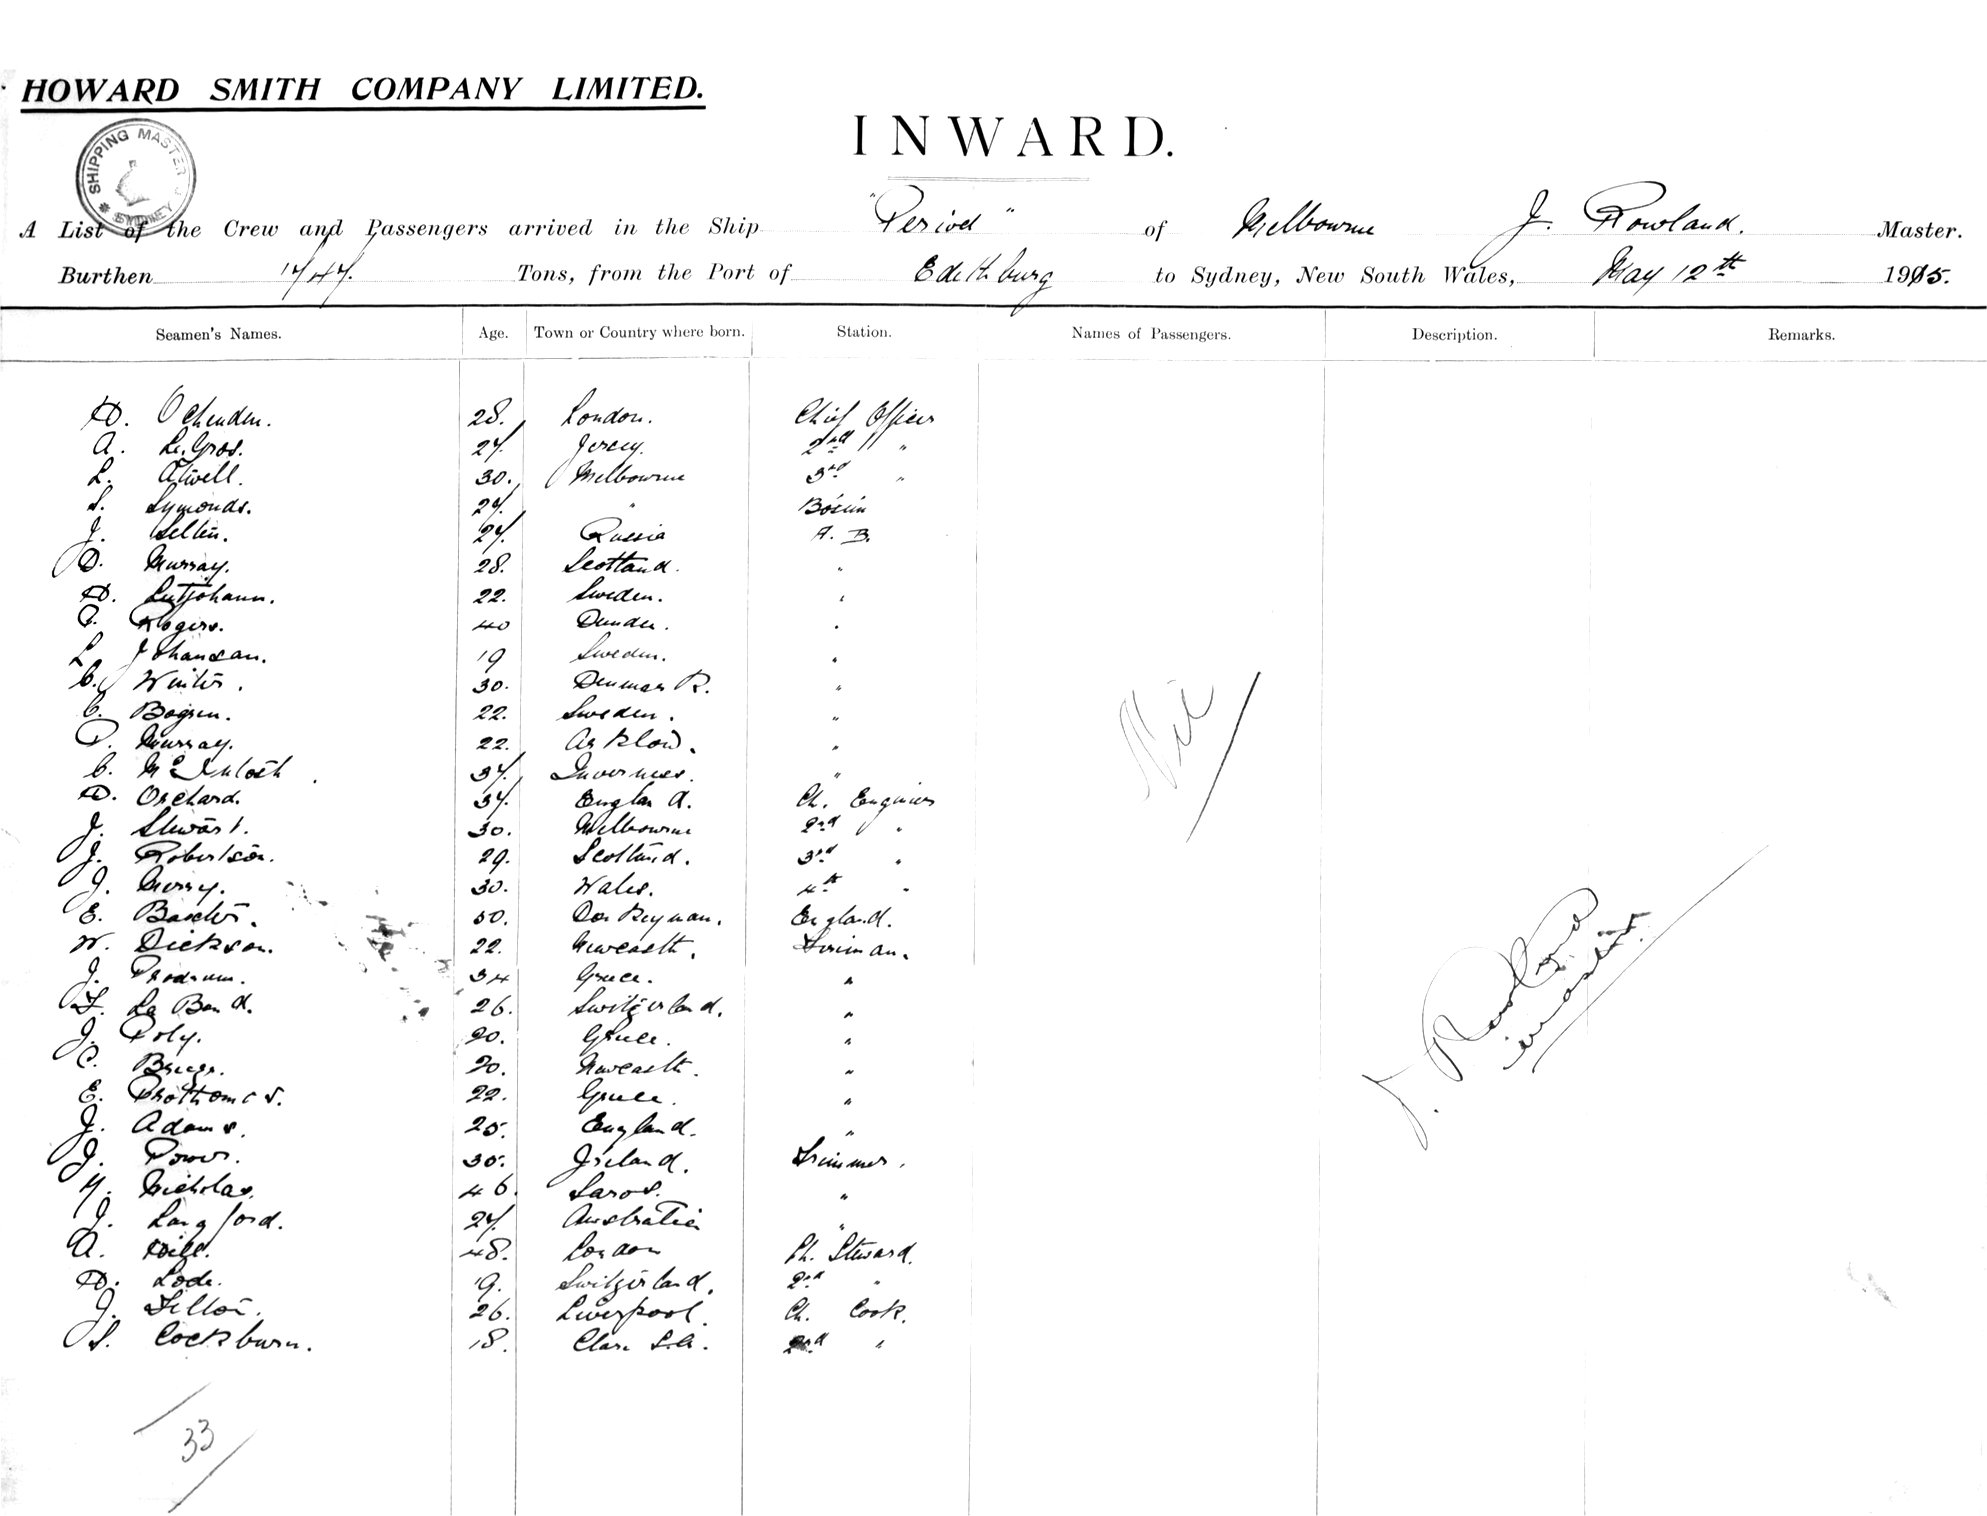 HOWARD SMITH COMPANY LIMITED.
SHIPPING MASTER SYDNEY
INWARD.
A List of the Crew and Passengers arrived in the Ship "Period" of Melbourne J. Rowland. Master.
Burthen 1747. Tons, from the Port of Edithburg to Sydney, New South Wales, May 12th 1915.
Seamen's Names. Age. Town or Country where born. Station. Names of Passengers. Description. Remarks.
H. Ockenden. 28. London. Chief Officer
A. Le Gros. 27. Jersey. 2nd "
L. Atwell. 30. Melbourne 3rd "
S. Symonds. 27. " Bosun
J. Sellin. 27. Russia A. B.
D. Murray. 28. Scotland. "
H. Lutjohann. 22. Sweden. "
P. Rogers. 40 Dundee. "
L. Johansan. 19 Sweden. "
C. Winter. 30. Denmark. "
C. Bogsen. 22. Sweden. "
P. Murray. 22. Arklow. "
C. McIntosh 37. Inverness. "
H. Orchard. 37. England. Ch. Engineer
J. Stewart. 30. Melbourne 2nd "
J. Robertson. 29. Scotland. 3rd "
J. Merry. 30. Wales. 4th "
E. Baxter. 50. Donkeyman. England.
W. Dickson. 22. Newcastle. Fireman.
J. Prodrum. 34 Greece. "
F. La Bend. 26. Switzerland. "
J. Poly. 20. Greece. "
C. 20. Newcastle. "
E. 22. Greece. "
J. Adams. 25. England. "
J. Power. 35. Ireland. Trimmer.
N. Nicholas. 46. Saros. "
J. Langford. 27. Australia "
A. Hill. 48. London Ch. Steward.
H. Lode. 19. Switzerland. 2nd "
J. 26. Liverpool. Ch. Cook.
S. Cockburn. 18. Clare S.A. 2nd "
Nil
J. Rowland
master
33